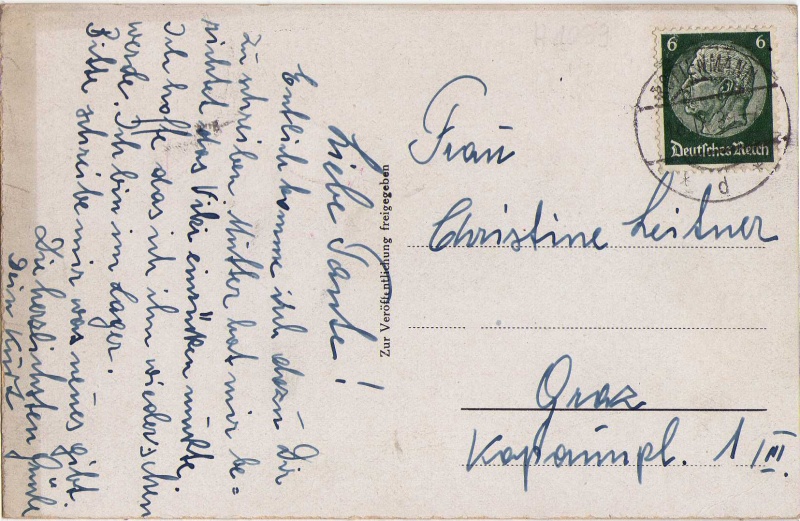 Liebe Tante!
Entlich komme ich dazu Dir
zu schreiben. Mutter hat mir be=
richtet das Viki einrücken mußte.
Ich hoffe das ich ihn wiedersehen
werde. Ich bin im Lager.
Bitte schreibe mir was neues gibt.
Die herzlichsten Grüße
Dein Kurt
Zur Veröffentlichung freigegeben
6 6
Deutsches Reich
Frau
Christine Leitner
Graz
Kapaunpl. 1 III.